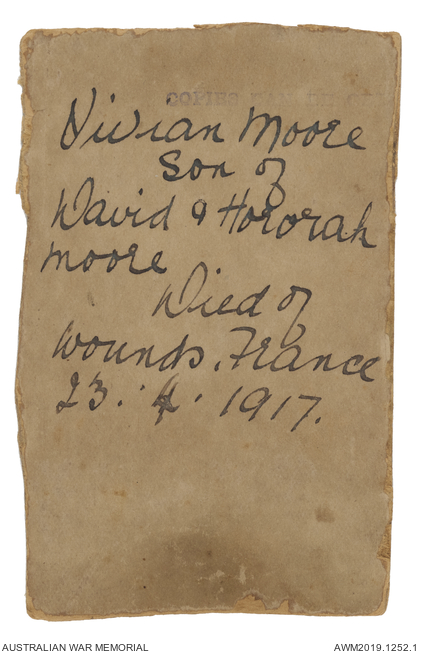 COPIES
Vivian Moore
Son of
David & Hororah
Moore
Died of
wounds. France
23. 4. 1917.
AUSTRALIAN WAR MEMORIAL
AWM2019.1252.1